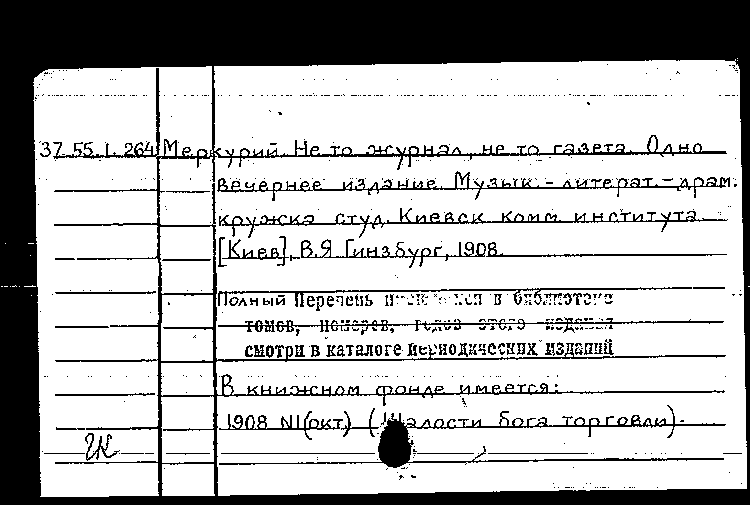 37.55.1.264 Меркурий. Не то журнал, не то газета. Одно
вечернее издание Музык.-литерат.-драм.
кружка студ. Киевск комм института
[Киев], В.Я Гинзбург, 1908.
Полный Перечень имеющихся в библиотеке
томов, номеров, годов этого издания
смотри в каталоге периодических изданий
В книжном фонде имеется:
1908 N1(окт.) (Шалости бога торговли).